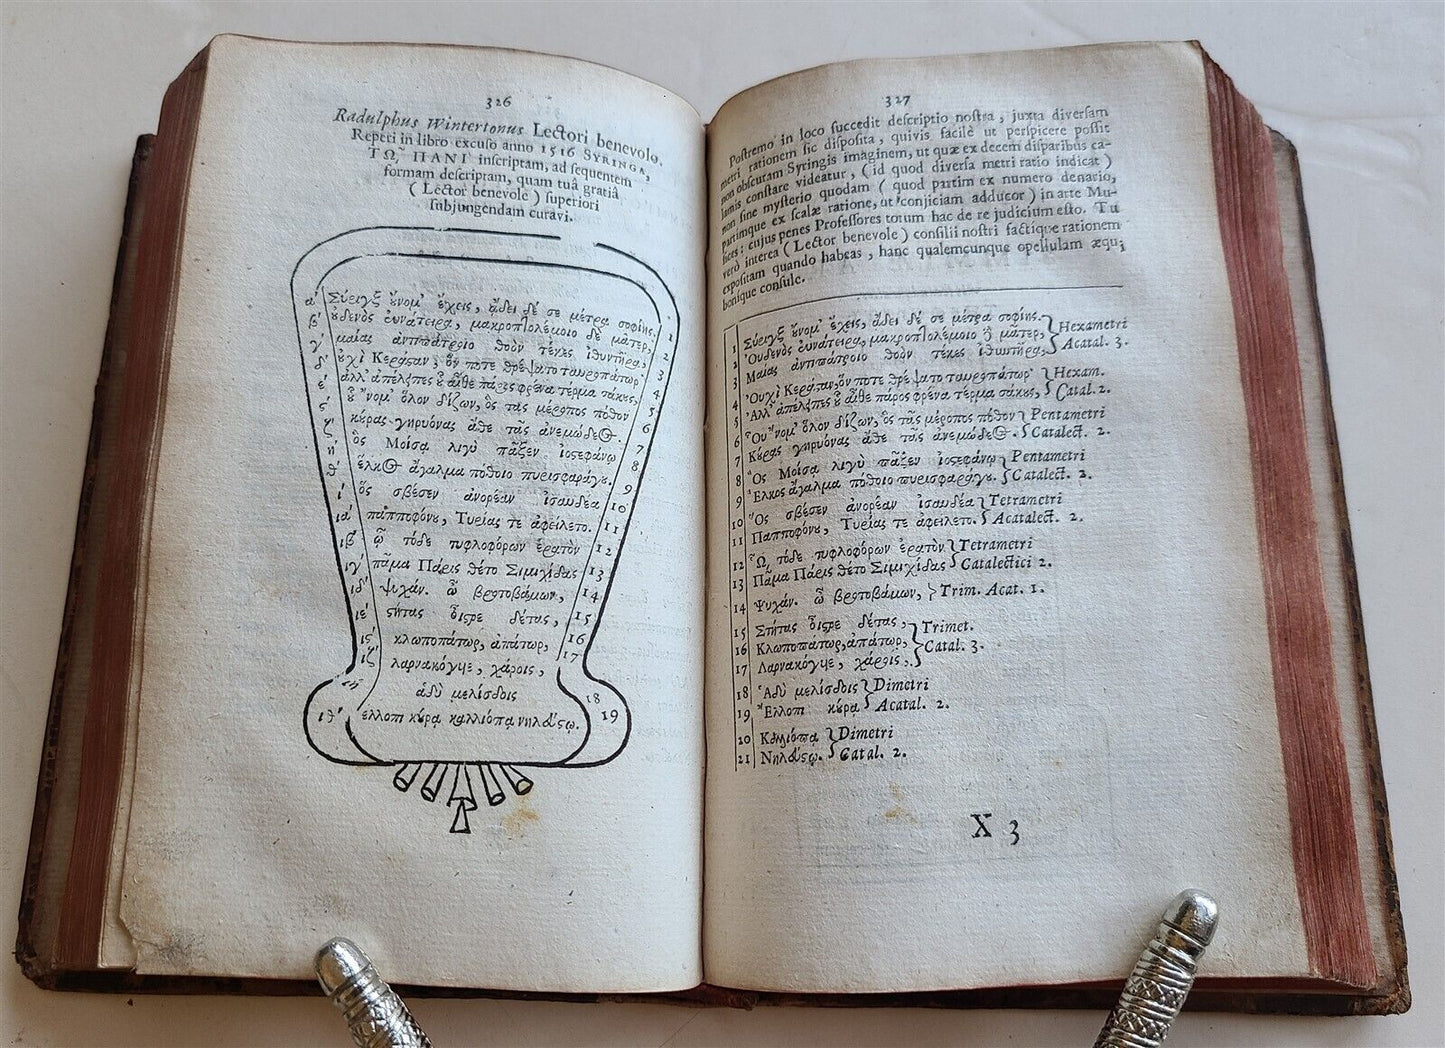 326
Radulphus Wintertonus Lectori benevolo.
Reperi in libro excuso anno 1516 SYRINGA,
Τῼ͂ ΠΑΝΙ inscriptam, ad sequentem
formam descriptam, quam tuâ gratiâ
( Lector benevole ) superiori
subjungendam curavi.
α' Σύριγξ οὔνομ' ἔχεις, ᾄδει δέ σε μέτρα σοφίης. 1
β' οὐδενὸς εὐνάτειρα, μακροπτολέμοιο δὲ μᾶτερ, 2
γ' μαίας ἀντιπάτροιο θοὸν τέκες ἰθυντῆρα, 3
δ' οὐχὶ Κεράσαν, ὅν ποτε θρέψατο ταυροπάτωρ 4
ε' ἀλλ' ἀπέλιπες οὗ αἶθε πάρος φρένα τέρμα σάκους, 5
ϛ' οὗ 'νομ' ὅλον δίζων, ὃς τᾶς μέροπος πόθον 6
ζ' κούρας γηρυόνας ἄθε τᾶς ἀνεμώδεος. 7
η' ὃς Μοίσᾳ λιγὺ πᾶξεν ἰοστεφάνῳ 8
θ' ἕλκος ἄγαλμα πόθοιο πυρισφαράγου. 9
ι' ὃς σβέσεν ἀνορέαν ἰσαυδέα 10
ια' παπποφόνου, Τυρίας τε ἀφείλετο. 11
ιβ' ᾧ τόδε τυφλοφόρων ἐρατὸν 12
ιγ' πᾶμα Πάρις θέτο Σιμιχίδας 13
ιδ' ψυχάν. ᾧ βροτοβάμων, 14
ιε' στήτας οἶστρε δέτας, 15
ιϛ' κλωποπάτωρ, ἀπάτωρ, 16
ιζ' λαρνακόγυιε, χάροις, 17
ιη' ἁδὺ μελίσδοις 18
ιθ' ἔλλοπι κούρᾳ καλλιόπᾳ νηλεύστῳ. 19
327
Postremo in loco succedit descriptio nostra, juxta diversam
metri rationem sic disposita, quivis facilè ut perspicere possit
non obscuram Syringis imaginem, ut quæ ex decem disparibus ca-
lamis constare videatur, (id quod diversa metri ratio indicat)
non sine mysterio quodam ( quod partim ex numero denario,
partimque ex scalæ ratione, ut conjiciam adducor ) in arte Mu-
sices; cujus penes Professores totum hac de re judicium esto. Tu
verò interea ( Lector benevole ) consilii nostri factique rationem
expositam quando habeas, hanc qualemcunque opellulam æqui
bonique consule.
1 Σύριγξ οὔνομ' ἔχεις, ᾄδει δέ σε μέτρα σοφίης.
2 Οὐδενὸς εὐνάτειρα, μακροπτολέμοιο δὲ μᾶτερ, Hexametri
3 Μαίας ἀντιπάτροιο θοὸν τέκες ἰθυντῆρα, Acatal. 3.
4 Οὐχὶ Κεράσαν, ὅν ποτε θρέψατο ταυροπάτωρ Hexam.
5 Ἀλλ' ἀπέλιπες οὗ αἶθε πάρος φρένα τέρμα σάκους, Catal. 2.
6 Οὗ 'νομ' ὅλον δίζων, ὃς τᾶς μέροπος πόθον Pentametri
7 Κούρας γηρυόνας ἄθε τᾶς ἀνεμώδεος. Catalect. 2.
8 Ὃς Μοίσᾳ λιγὺ πᾶξεν ἰοστεφάνῳ Pentametri
9 Ἕλκος ἄγαλμα πόθοιο πυρισφαράγου. Catalect. 2.
10 Ὃς σβέσεν ἀνορέαν ἰσαυδέα Tetrametri
11 Παπποφόνου, Τυρίας τε ἀφείλετο. Acatalect. 2.
12 Ὧ, τόδε τυφλοφόρων ἐρατὸν Tetrametri
13 Πᾶμα Πάρις θέτο Σιμιχίδας Catalectici 2.
14 Ψυχάν. ᾧ βροτοβάμων, Trim. Acat. 1.
15 Στήτας οἶστρε δέτας, Trimet.
16 Κλωποπάτωρ, ἀπάτωρ, Catal. 3.
17 Λαρνακόγυιε, χάροις,
18 Ἁδὺ μελίσδοις Dimetri
19 Ἔλλοπι κούρᾳ Acatal. 2.
20 Καλλιόπᾳ Dimetri
21 Νηλεύστῳ. Catal. 2.
X 3